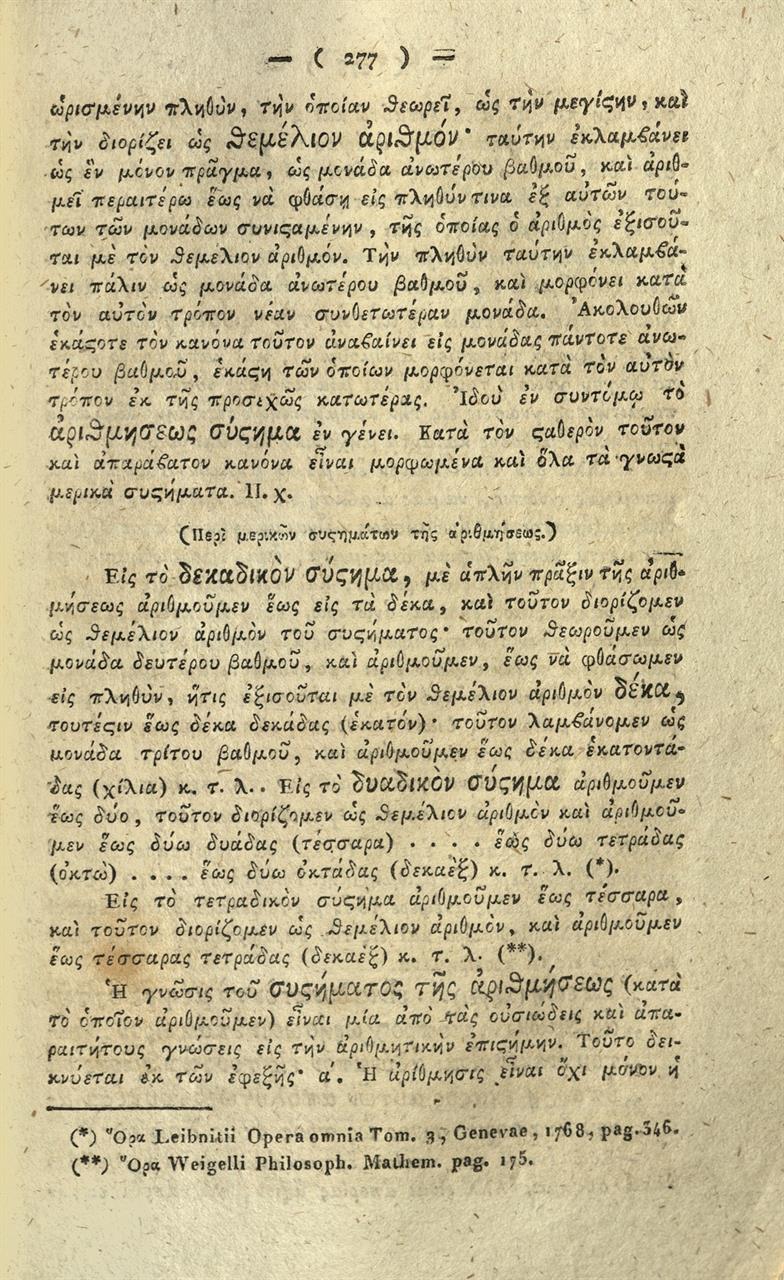 — ( 277 ) —
ὡρισμένην πληθὺν, τὴν ὁποίαν θεωρεῖ, ὡς τὴν μεγίϛην, καὶ
τὴν διορίζει ὡς θεμέλιον ἀριθμόν· ταύτην ἐκλαμβάνει
ὡς ἓν μόνον πρᾶγμα, ὡς μονάδα ἀνωτέρου βαθμοῦ, καὶ ἀριθ-
μεῖ περαιτέρω ἕως νὰ φθάσῃ εἰς πληθύν τινα ἐξ αὐτῶν τού-
των τῶν μονάδων συνιϛαμένην, τῆς ὁποίας ὁ ἀριθμὸς ἐξισοῦ-
ται μὲ τὸν θεμέλιον ἀριθμόν. Τὴν πληθὺν ταύτην ἐκλαμβά-
νει πάλιν ὡς μονάδα ἀνωτέρου βαθμοῦ, καὶ μορφόνει κατὰ
τὸν αὐτὸν τρόπον νέαν συνθετωτέραν μονάδα. Ἀκολουθῶν
ἑκάϛοτε τὸν κανόνα τοῦτον ἀναβαίνει εἰς μονάδας πάντοτε ἀνω-
τέρου βαθμοῦ, ἑκάϛη τῶν ὁποίων μορφόνεται κατὰ τὸν αὐτὸν
τρόπον ἐκ τῆς προσεχῶς κατωτέρας. Ἰδοὺ ἐν συντόμῳ τὸ
ἀριθμήσεως σύϛημα ἐν γένει. Κατὰ τὸν ϛαθερὸν τοῦτον
καὶ ἀπαράβατον κανόνα εἶναι μορφωμένα καὶ ὅλα τὰ γνωϛὰ
μερικὰ συϛήματα. Π. χ.
(Περὶ μερικῶν συϛημάτων τῆς ἀριθμήσεως.)
Εἰς τὸ δεκαδικὸν σύϛημα, μὲ ἁπλῆν πρᾶξιν τῆς ἀριθ-
μήσεως ἀριθμοῦμεν ἕως εἰς τὰ δέκα, καὶ τοῦτον διορίζομεν
ὡς θεμέλιον ἀριθμὸν τοῦ συϛήματος· τοῦτον θεωροῦμεν ὡς
μονάδα δευτέρου βαθμοῦ, καὶ ἀριθμοῦμεν, ἕως νὰ φθάσωμεν
εἰς πληθὺν, ἥτις ἐξισοῦται μὲ τὸν θεμέλιον ἀριθμὸν δέκα,
τουτέϛιν ἕως δέκα δεκάδας (ἑκατόν)· τοῦτον λαμβάνομεν ὡς
μονάδα τρίτου βαθμοῦ, καὶ ἀριθμοῦμεν ἕως δέκα ἑκατοντά-
δας (χίλια) κ. τ. λ.. Εἰς τὸ δυαδικὸν σύϛημα ἀριθμοῦμεν
ἕως δύο, τοῦτον διορίζομεν ὡς θεμέλιον ἀριθμὸν καὶ ἀριθμοῦ-
μεν ἕως δύω δυάδας (τέσσαρα) . . . . ἕως δύω τετράδας
(ὀκτὼ) . . . . ἕως δύω ὀκτάδας (δεκαὲξ) κ. τ. λ. (*).
Εἰς τὸ τετραδικὸν σύϛημα ἀριθμοῦμεν ἕως τέσσαρα,
καὶ τοῦτον διορίζομεν ὡς θεμέλιον ἀριθμὸν, καὶ ἀριθμοῦμεν
ἕως τέσσαρας τετράδας (δεκαὲξ) κ. τ. λ. (**).
Ἡ γνῶσις τοῦ συϛήματος τῆς ἀριθμήσεως (κατὰ
τὸ ὁποῖον ἀριθμοῦμεν) εἶναι μία ἀπὸ τὰς οὐσιώδεις καὶ ἀπα-
ραιτήτους γνώσεις εἰς τὴν ἀριθμητικὴν ἐπιϛήμην. Τοῦτο δει-
κνύεται ἐκ τῶν ἐφεξῆς· α΄. Ἡ ἀρίθμησις εἶναι ὄχι μόνον ἡ
(*) Ὅρα Leibnitii Opera omnia Tom. 3, Genevae, 1768, pag. 346.
(**) Ὅρα Weigelli Philosoph. Mathem. pag. 175.